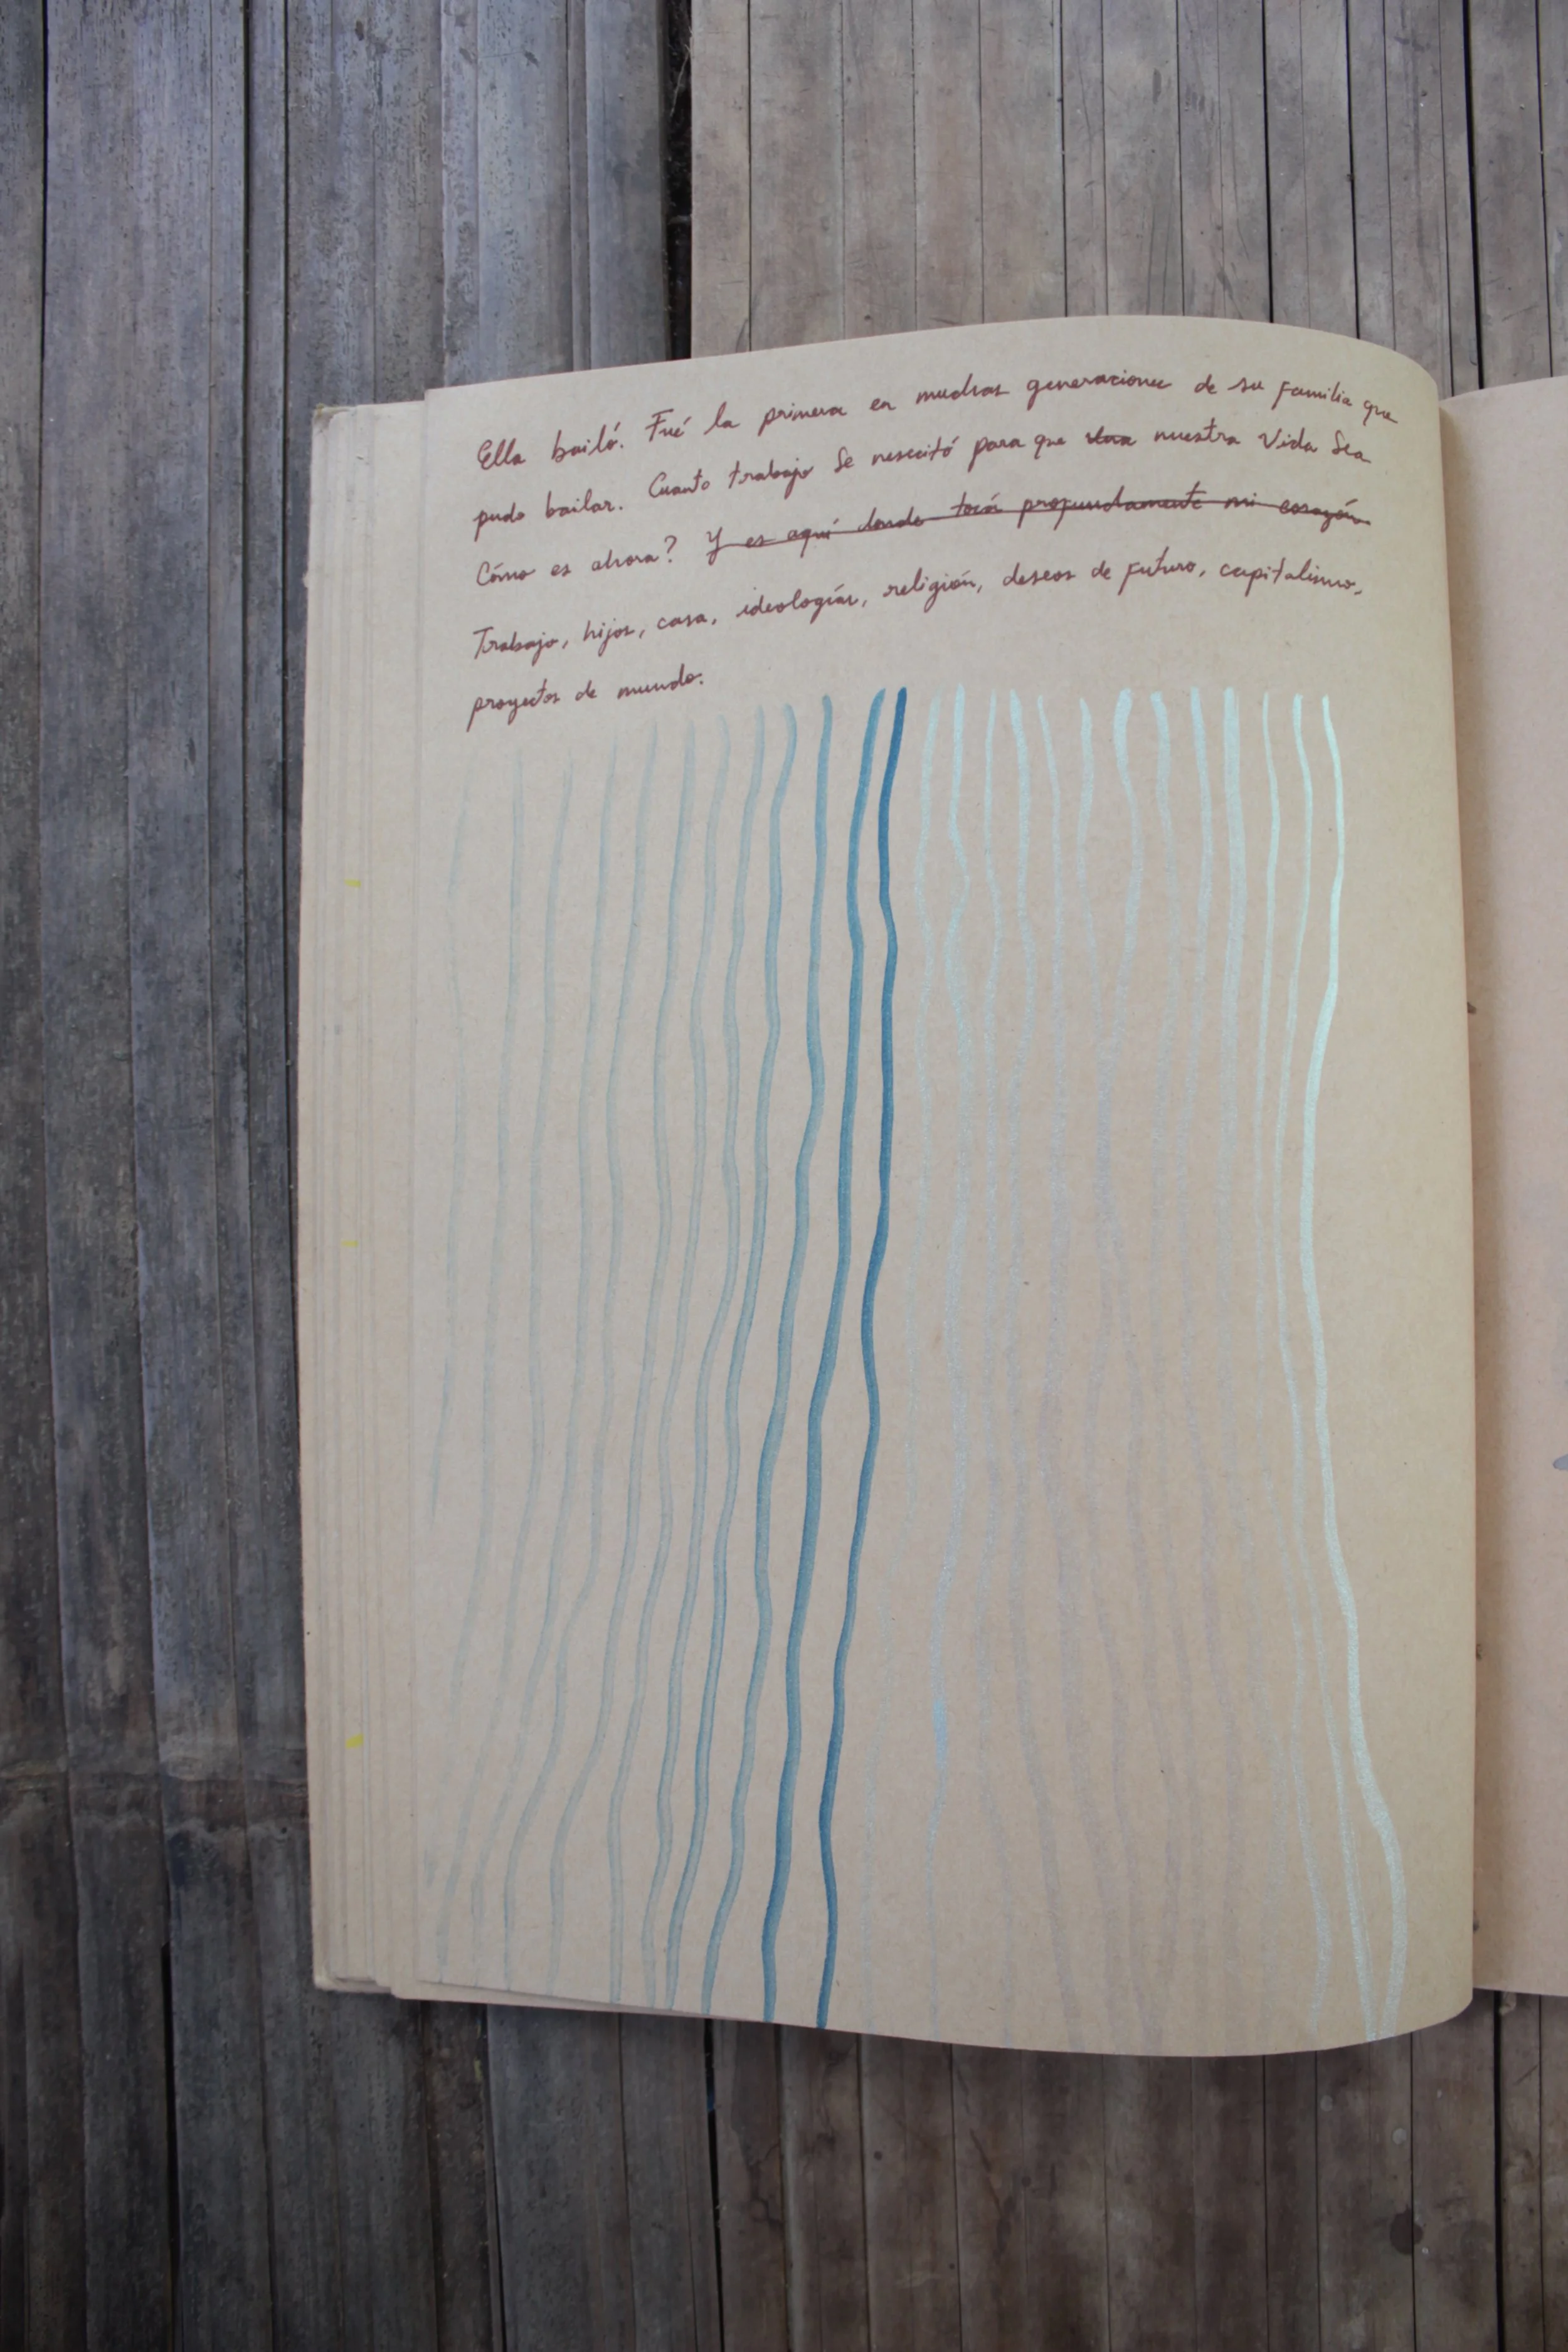 Ella bailó. Fué la primera en muchas generaciones de su familia que
pudo bailar. Cuanto trabajo se nesecitó para que nuestra Vida Sea
Cómo es ahora? Y es aquí donde tocá profundamente mi corazón
Trabajo, hijos, casa, ideologías, religión, deseos de futuro, capitalismo,
proyectos de mundo.